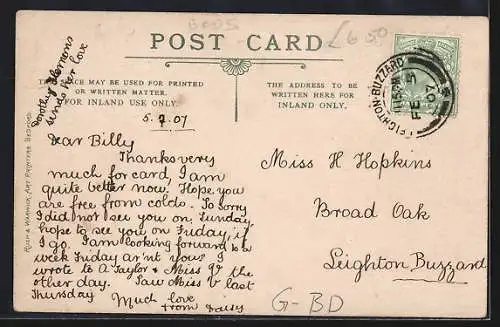 B005
£6.50
POST CARD
THIS SPACE MAY BE USED FOR PRINTED
OR WRITTEN MATTER.
FOR INLAND USE ONLY.
THE ADDRESS TO BE
WRITTEN HERE FOR
INLAND ONLY.
LEIGHTON-BUZZARD
FE 5
07
Dorothy
sends her love
RUSH & WARWICK, ART PRINTERS BEDFORD
5.2.07
Dear Billy
Thanks very
much for card, I am
quite better now. Hope you
are free from colds. So sorry
I did not see you on Sunday,
hope to see you on Friday, if
I go. I am looking forward to a
week Friday ar'nt you? I
wrote to A Taylor & Miss the
other day. Saw Miss V last
Thursday
Much love
from Daisy
Miss H Hopkins
Broad Oak
Leighton Buzzard
G-BD